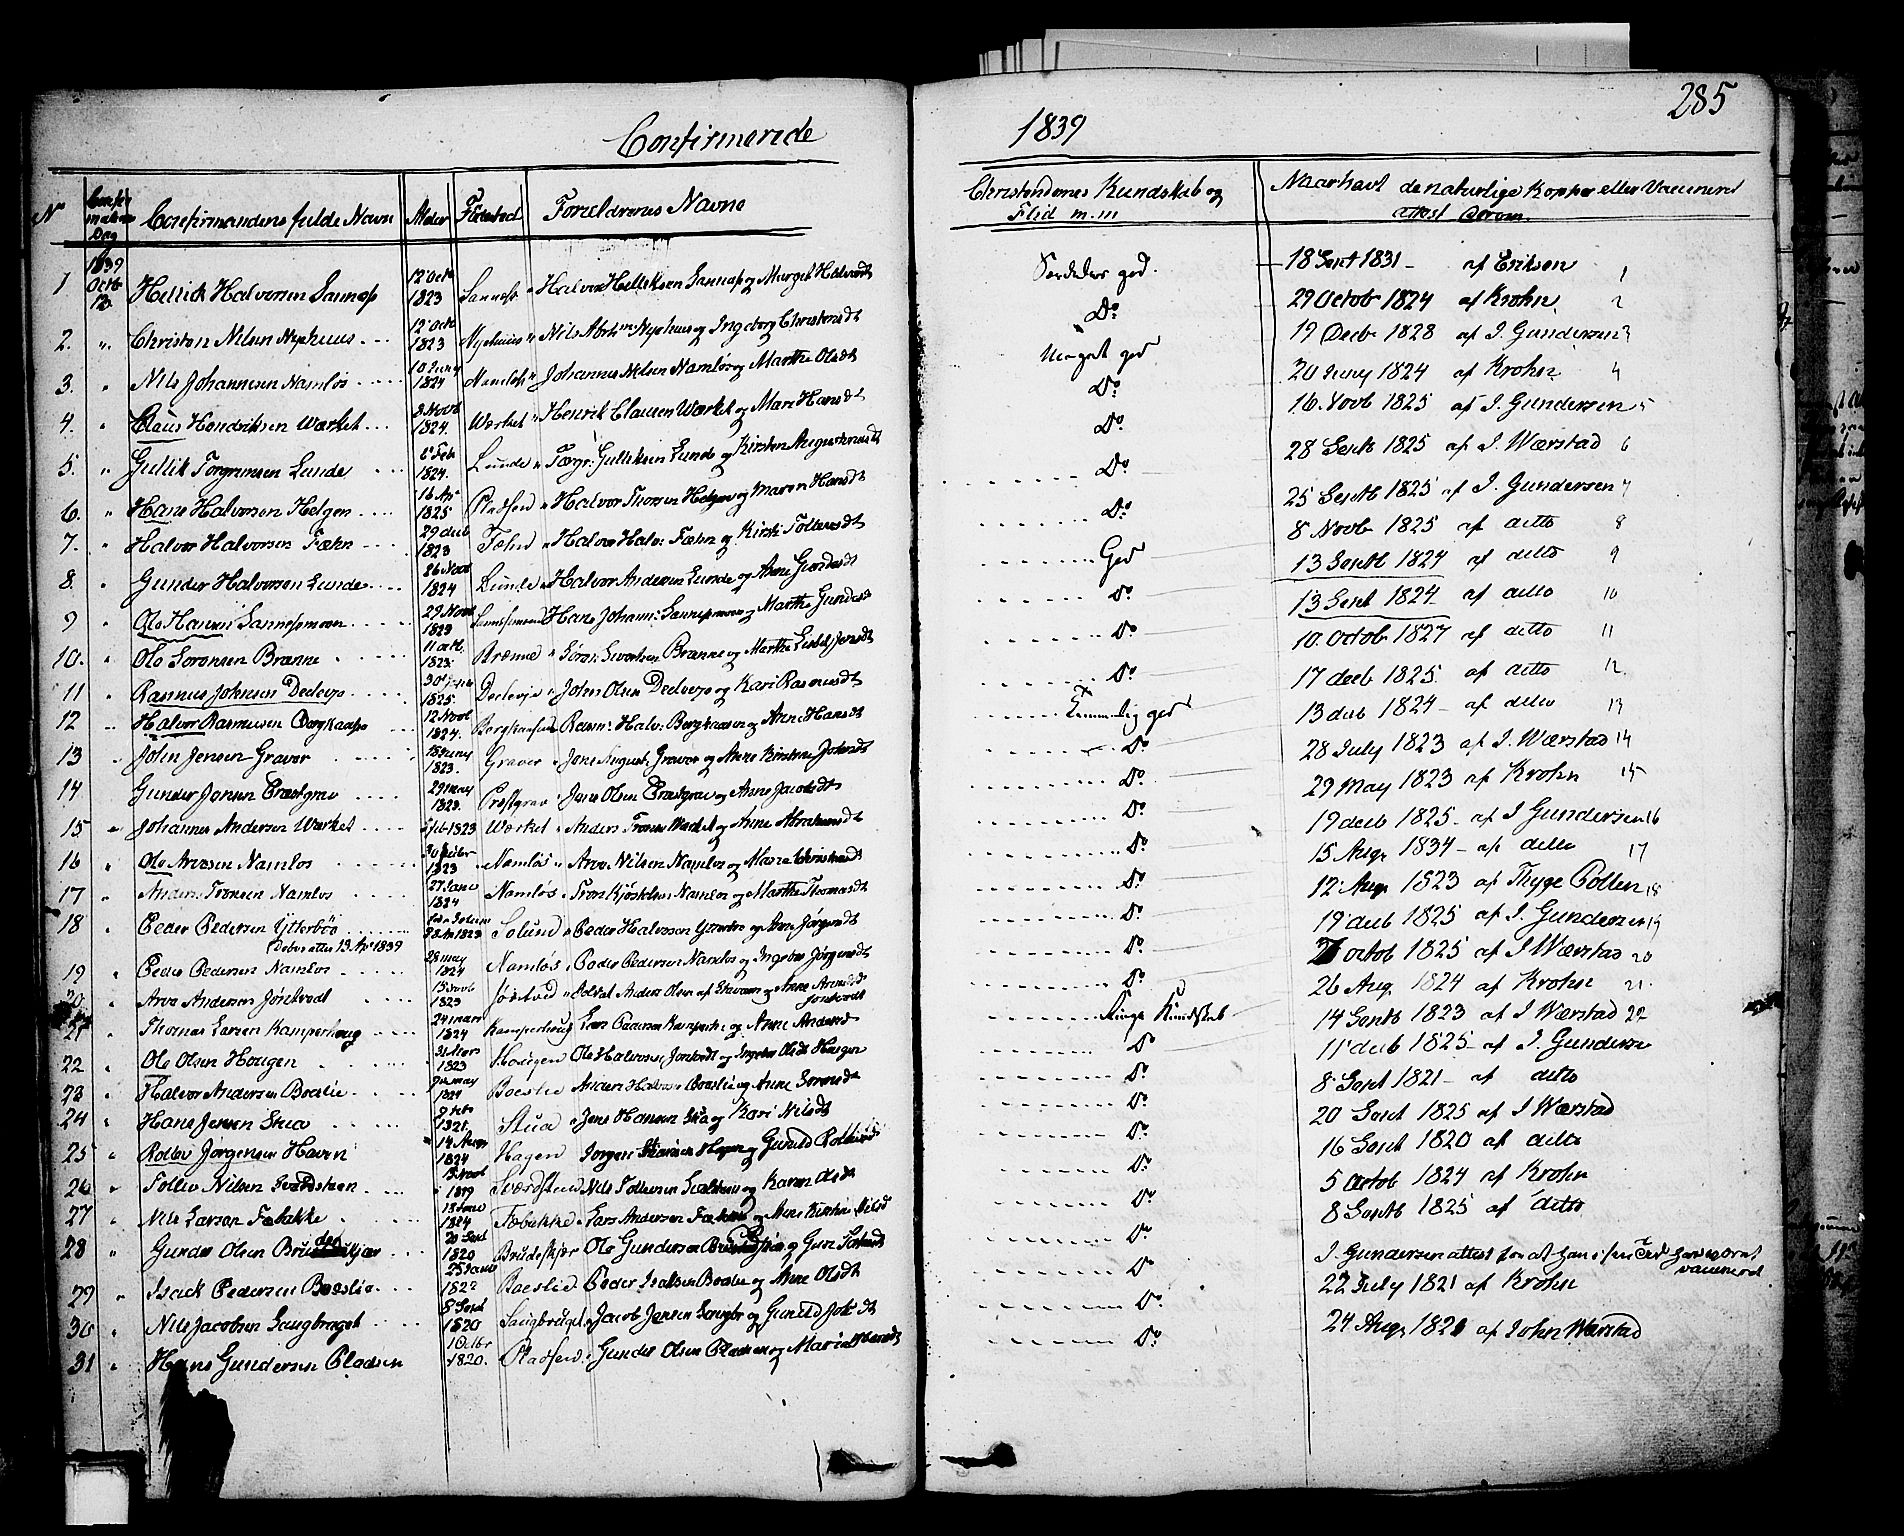 285
Confirmerede 1839
N Confirmations Dag Confirmandens fulde Navn Alder Fødested Forældrenes Navne Christendoms Kundskab og Flid m.m Naar havt de naturlige Kopper eller Vaccineret attest derom.
1 1839 Octb 12 Hellick Halvorsen Sannæss 12 Octb 1823 Sannæss Halvor Hellicksen Sannæss og Margit Halvorsdt Særdeles god. 18 Sept 1831 af Eriksen 1
2. " Christen Nilsen Nyehuus 12 Octb 1823 Nyehuus Nils Abrhms Nyehuus og Ingeborg Christensdt Do 29 Octob 1824 af Krohn 2
3. " Nils Johannesen Namløs 10 Juny 1824 Namløs Johannes Nilsen Namløs og Marthe Olsdt Meget god 19 Decb 1828 af I. Gundersen 3
4. " Claus Hendriksen Værket 3 Novb 1824. Værket Henrik Clausen Værket og Mari Hansdt Do 20 Juny 1824 af Krohn 4
5. " Gullik Torgrimsen Lunde Feb 1824. Lunde Torgr: Gulliksen Lunde og Kirsten Augustinusdt Do 16 Novb 1825 af I. Gundersen 5
6. " Hans Halvorsen Helgen 16 Ap 1825 Pladsen Halvor Thorsen Helgen og Maren Hansdt Do 28 Septb 1825 af I. Værstad 6
7. " Halvor Halvorsen Fæhn 29 decb 1823 Fæhn Halvor Halv: Fæhn og Kirsti Tollevsdt Do 25 Septb 1825 af I. Gundersen 7
8. " Gunder Halvorsen Lunde 26 Novb 1824 Lunde Halvor Andersen Lunde og Anne Gundersdt God 8 Novb 1825 af ditto 8
9 " Ole Hansen Sannessmoen 29 Novb 1823 Sannessmoen Hans Johann: Sannessmoen og Marthe Gundersdt Do 13 Septb 1824 af ditto 9
10. " Ole Sørensen Brænne 11 octb. 1823. Brænne Søren Sivertsen Brænne og Marthe Lisbet Jensdt Do 13 Sept 1824 af ditto 10
11 " Rasmus Johnsen Dedevje 1825. Dedevje John Olsen Dedevje og Kari Rasmusdt Do 10. Octob 1827 af ditto 11
12 " Halvor Rasmusen Bergkaasa 12 Novb 1824. Bergkaasa Rasm: Halv: Bergkaasen og Anne Hansdt Temmelig god 17 decb 1825. af ditto 12.
13 " John Jensen Graver 15 Juny 1823. Graver Jens August: Graver og Anne Kirstine Johnsdt Do 13 decb 1824 af ditto 13
14 " Gunder Jensen Præstgrav 29 may 1823. Præstgrav Jens Olsen Præstgrav og Anne Jacobsdt Do 28 July 1823 af I. Værstad 14
15 " Johannes Andersen Værket Feb 1823 Værket Anders Tronsen Værket og Anne Abrahamsdt Do 29 May 1823 af Krohn 15
16 " Ole Arvesen Namløs 1823 Namløs Arve Nilsen Namløs og Maria Christensdt Do 19 decb 1825 af I Gundersen 16
17 " Anders Tronsen Namløs 27 Janu 1824 Namløs Tron Kjøstelsen Namløs og Marthe Thomasdt Do 15 Augr 1834 af ditto 17
18 " Peder Pedersen Ytterbøe 1823 Solund Peder Halvorsen Ytterbøe og Anne Jørgensdt Do 12 Augr 1823 af Thyge Pollen 18
Døbeattest 13 Apr 1839
19 " Peder Pedersen Namløs 28 may 1824 Namløs Peder Pedersen Namløs og Ingebor Jørgensdt Do 19 decb 1825 af I. Gundersen 19
20 " Arve Andersen Jøntvedt 15 Novb 1823 Jøntved Soldat Anders Olsen af Staværn og Anne Arvesdt Jøntvedt Do octob 1825 af I Værstad 20
21 " Thomas Larsen Kamperhoug 24 mars 1824 Kamperhoug Lars og Anne Andersd Ringe Kundskab 26 Augr 1824 af Krohn 21.
22 " Ole Olsen Hougen 31 Mars 1823 Hougen Ole Halvorsen Jøntvedt og Ingebor Olsdt Hougen Do 14 Septb 1823 af I Værstad 22
23 " Halvor Andersen Boeslie may 1824 Boeslie Anders Halvors: Boeslie og Anne Sørensdt Do 11 decb 1825 af I. Gunderse
24 " Hans Jensen Stua 1821. Stua Jens Hansen Stua og Kari Nilsdt Do 8 Sept 1821 af ditto
25 " Rollev Jørgensen Haven 14 Augr 1824 Hagen Jørgen Hagen og Gunild Rollevsdt Do 20 Sept 1825 af I Værstad
26 " Tollev Nilsen Sværdsteen 13 Novb 1819 Sværdsteen Nils Tollevsen og Karen Olsdt Do 16 Sept 1820 af ditto
27 " Nils Larsen Fæbakke 13 Janu 1824 Fæbakke Lars Andersen Fæbakke og Anne Kirstine Nilsd Do 5 Octob 1824 af Krohn
28 " Gunder Olsen Brudeskjær 20 Sept 1820 Brudeskjær Ole Gundersen Brudeskjær og Do 8 Septb 1825 af ditto
29 " Isack Pedersen Boeslie 25 Janu 1822 Boeslie Peder Isaksen Boeslie og Anne Olsdt Do I. Gundersen attest for at han i sin Tid har været vaccineret
30 " Nils Jacobsen Saugbruget 8 Sept 1820 Saugbruget Jacob Jensen Saugbr og Gunild Johsdt Do 22 July 1821 af Krohn
31 " Hans Gundersen Pladsen 1 Octbr 1820. Pladsen Gunder Olsen Pladsen og Mari Do 24 Augr 1821 af John Værstad